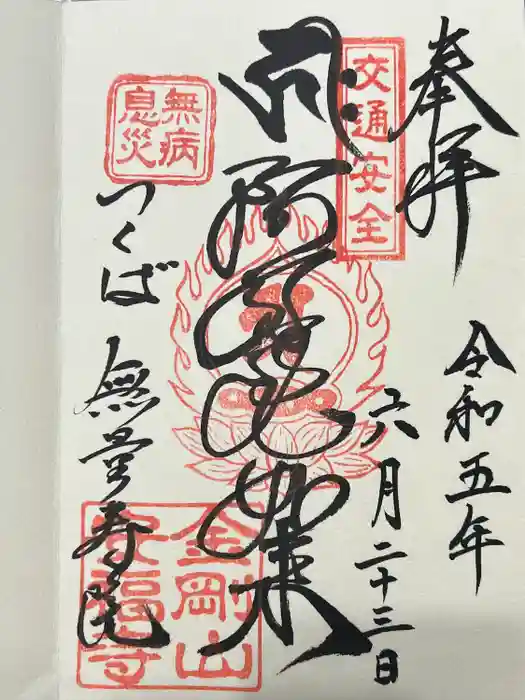 奉拝
交通安全
令和五年
六月二十三日
阿弥陀如来
無病
息災
つくば
無量寿院
金剛山
安福寺